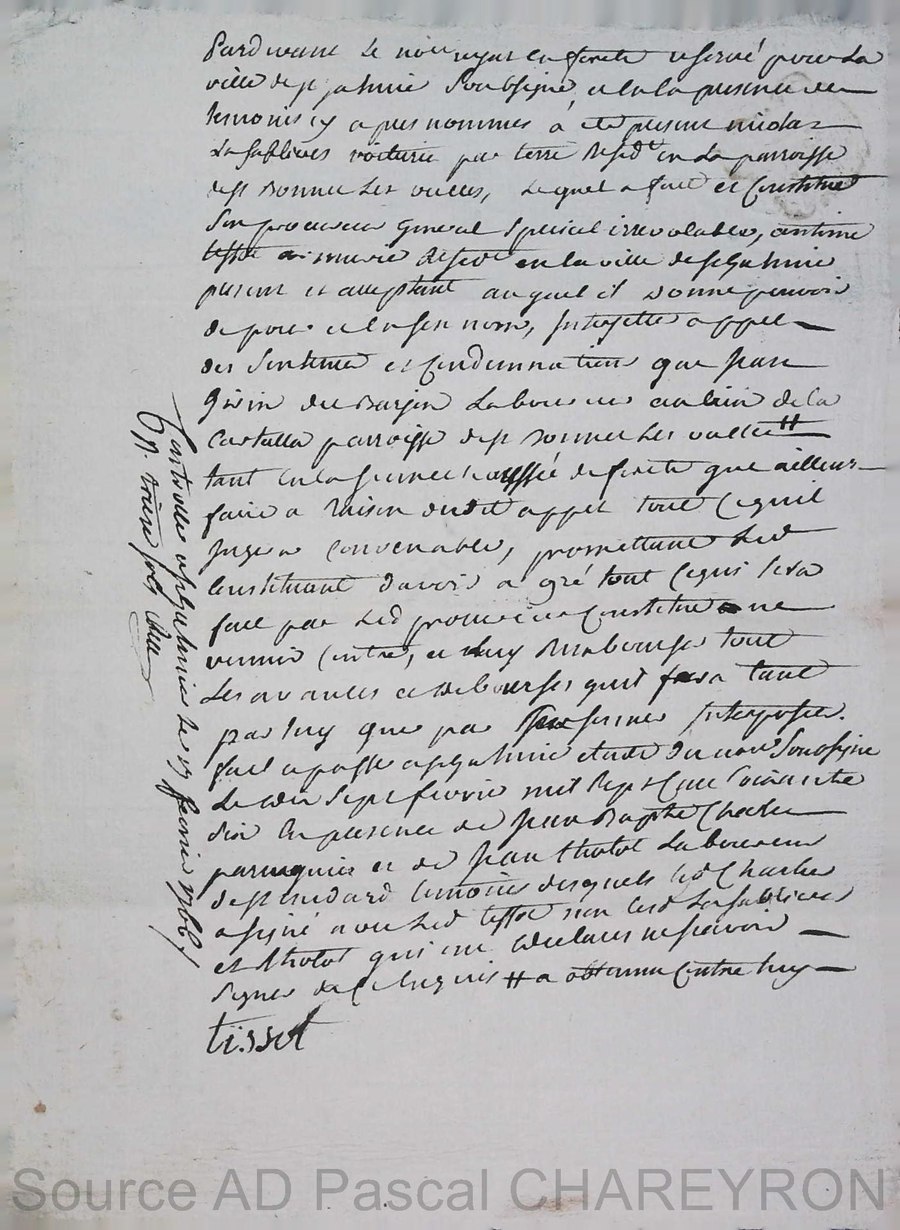 Pardevant Le no.re royal en forets reservé pour La
ville de st galmier Soubsigné, et en la presence des
temoins cy apres nommés a eté present nicolas
La sablieres voiturier par terre Resid.t en La parroisse
de st Bonnet Les oulles, Lequel a fait et Constitué
Son procureur general Special irrevocable, antoine
tissot Resid.t en la ville de st galmier
present et acceptant auquel il donne pouvoir
de pour et en son nom, Interjetter appel
des Sentence et Condamnation que Jean
du Laboureur au lieu de la
parroisse de st Bonnet Les oulles #
tant en la Senechaussée de forets que ailleurs
faire a raison dudit appel tout Ce quil
Jugera Convenable, promettant Led.
Constituant davoir a gré tout Ce qui Sera
fait par Led. procureur Constitué ne
venir Contre, et luy Rembourser tout
Les avances et deboursés quil fera tant
par luy que par personnes Interposées.
fait et passé a st galmier etude du no.re Soubsigné
Le dix Sept fevrier mil Sept Cent Soixante
Six En presence de Jean Baptiste Charles
perruquier et de Jean tholot Laboureur
de st medard temoins desquels led. Charles
a signé avec Led. tissot non Led. La sablieres
et tholot qui ont declarés ne scavoir
Signer de Ce Enquis # a obtenue Contre luy
tissot
Controllé a st galmier Le 19 fevrier 1766
R. treize sols